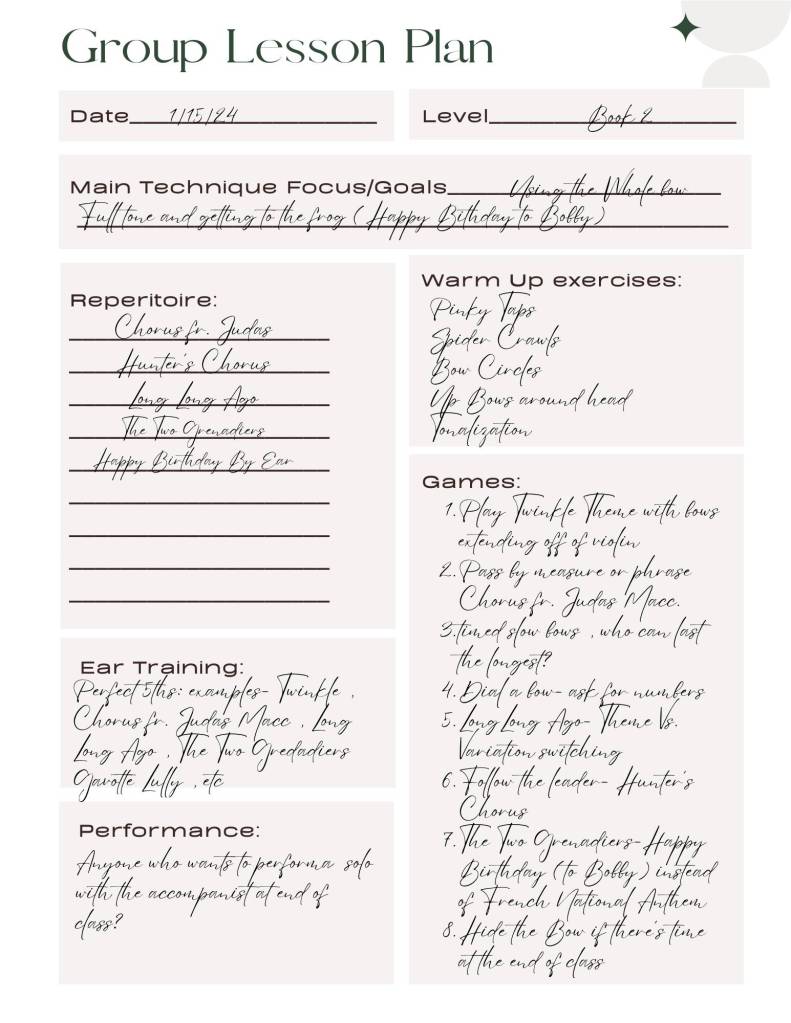 Group Lesson Plan
Date 1/15/24
Level Book 2
Main Technique Focus/Goals Using the Whole bow
Full tone and getting to the frog ( Happy Bithday to Bobby)
Reperitoire:
Chorus fr. Judas
Hunter's Chorus
Long Long Ago
The Two Grenadiers
Happy Birthday By Ear
Warm Up exercises:
Pinky Taps
Spider Crawls
Bow Circles
Up Bows around head
Tonalization
Games:
1. Play Twinkle Theme with bows
extending off of violin
2. Pass by measure or phrase
Chorus fr. Judas Macc.
3. timed slow bows , who can last
the longest?
4. Dial a bow- ask for numbers
5. Long Long Ago- Theme Vs.
Variation switching
6. Follow the leader- Hunter's
Chorus
7. The Two Grenadiers- Happy
Birthday (to Bobby) instead
of French National Anthem
8. Hide the Bow if there's time
at the end of class
Ear Training:
Perfect 5ths: examples- Twinkle ,
Chorus fr. Judas Macc , Long
Long Ago , The Two Gredadiers
Gavotte Lully , etc
Performance:
Anyone who wants to performa solo
with the accompanist at end of
class?